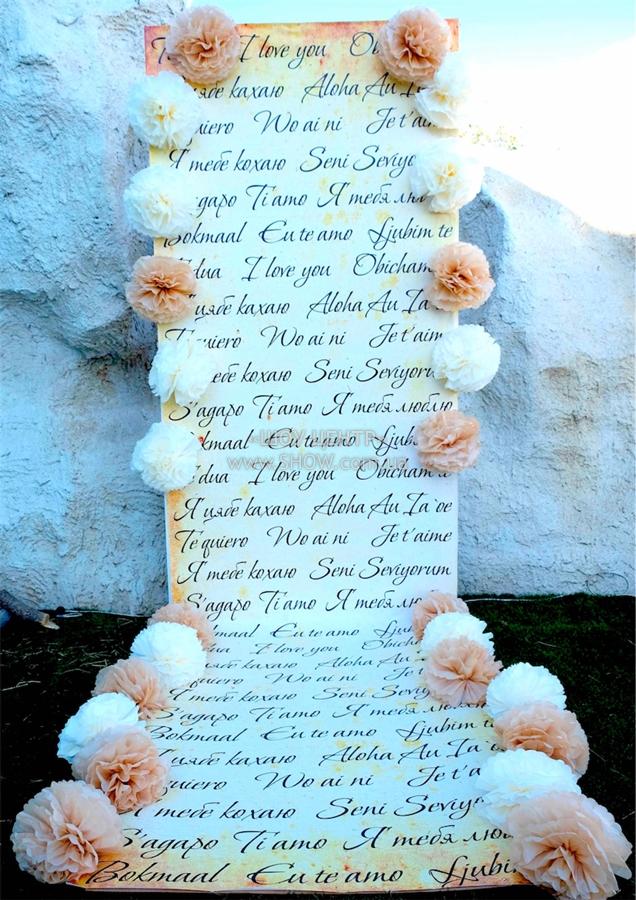 I love you
кахаю Aloha Au
Wo ai ni Je t'aim
Я тебе кохаю Seni Seviyo
Ti amo Я тебя
Bokmaal Eu te amo Ljubim te
dua I love you Obicham
цябе кахаю Aloha Au Ia
Te quiero Wo ai ni Je t'aim
тебе кохаю Seni Seviyoru
S'agapo Ti amo Я тебя люблю
kmaal Eu te amo Ljub
«ШОУ ЦЕНТР»
www.SHOW.com.ua
dua I love you Obicham
Я цябе кахаю Aloha Au Ia `oe
Te quiero Wo ai ni Je t'aime
Я тебе кохаю Seni Seviyorum
S'agapo Ti amo Я тебя лю
maal Eu te amo Ljub
dua I love you Obicha
кахаю Aloha Au
quiero Wo ai ni Je t
Я тебе кохаю Seni Seviy
S'agapo Ti amo Я тебя люб
Bokmaal Eu te amo Ljubim t
цябе кахаю Aloha Au Ia
quiero Wo ai ni Je t'a
тебе кохаю Seni Seviy
S'agapo Ti amo Я тебя люб
Bokmaal Eu te amo Ljubi